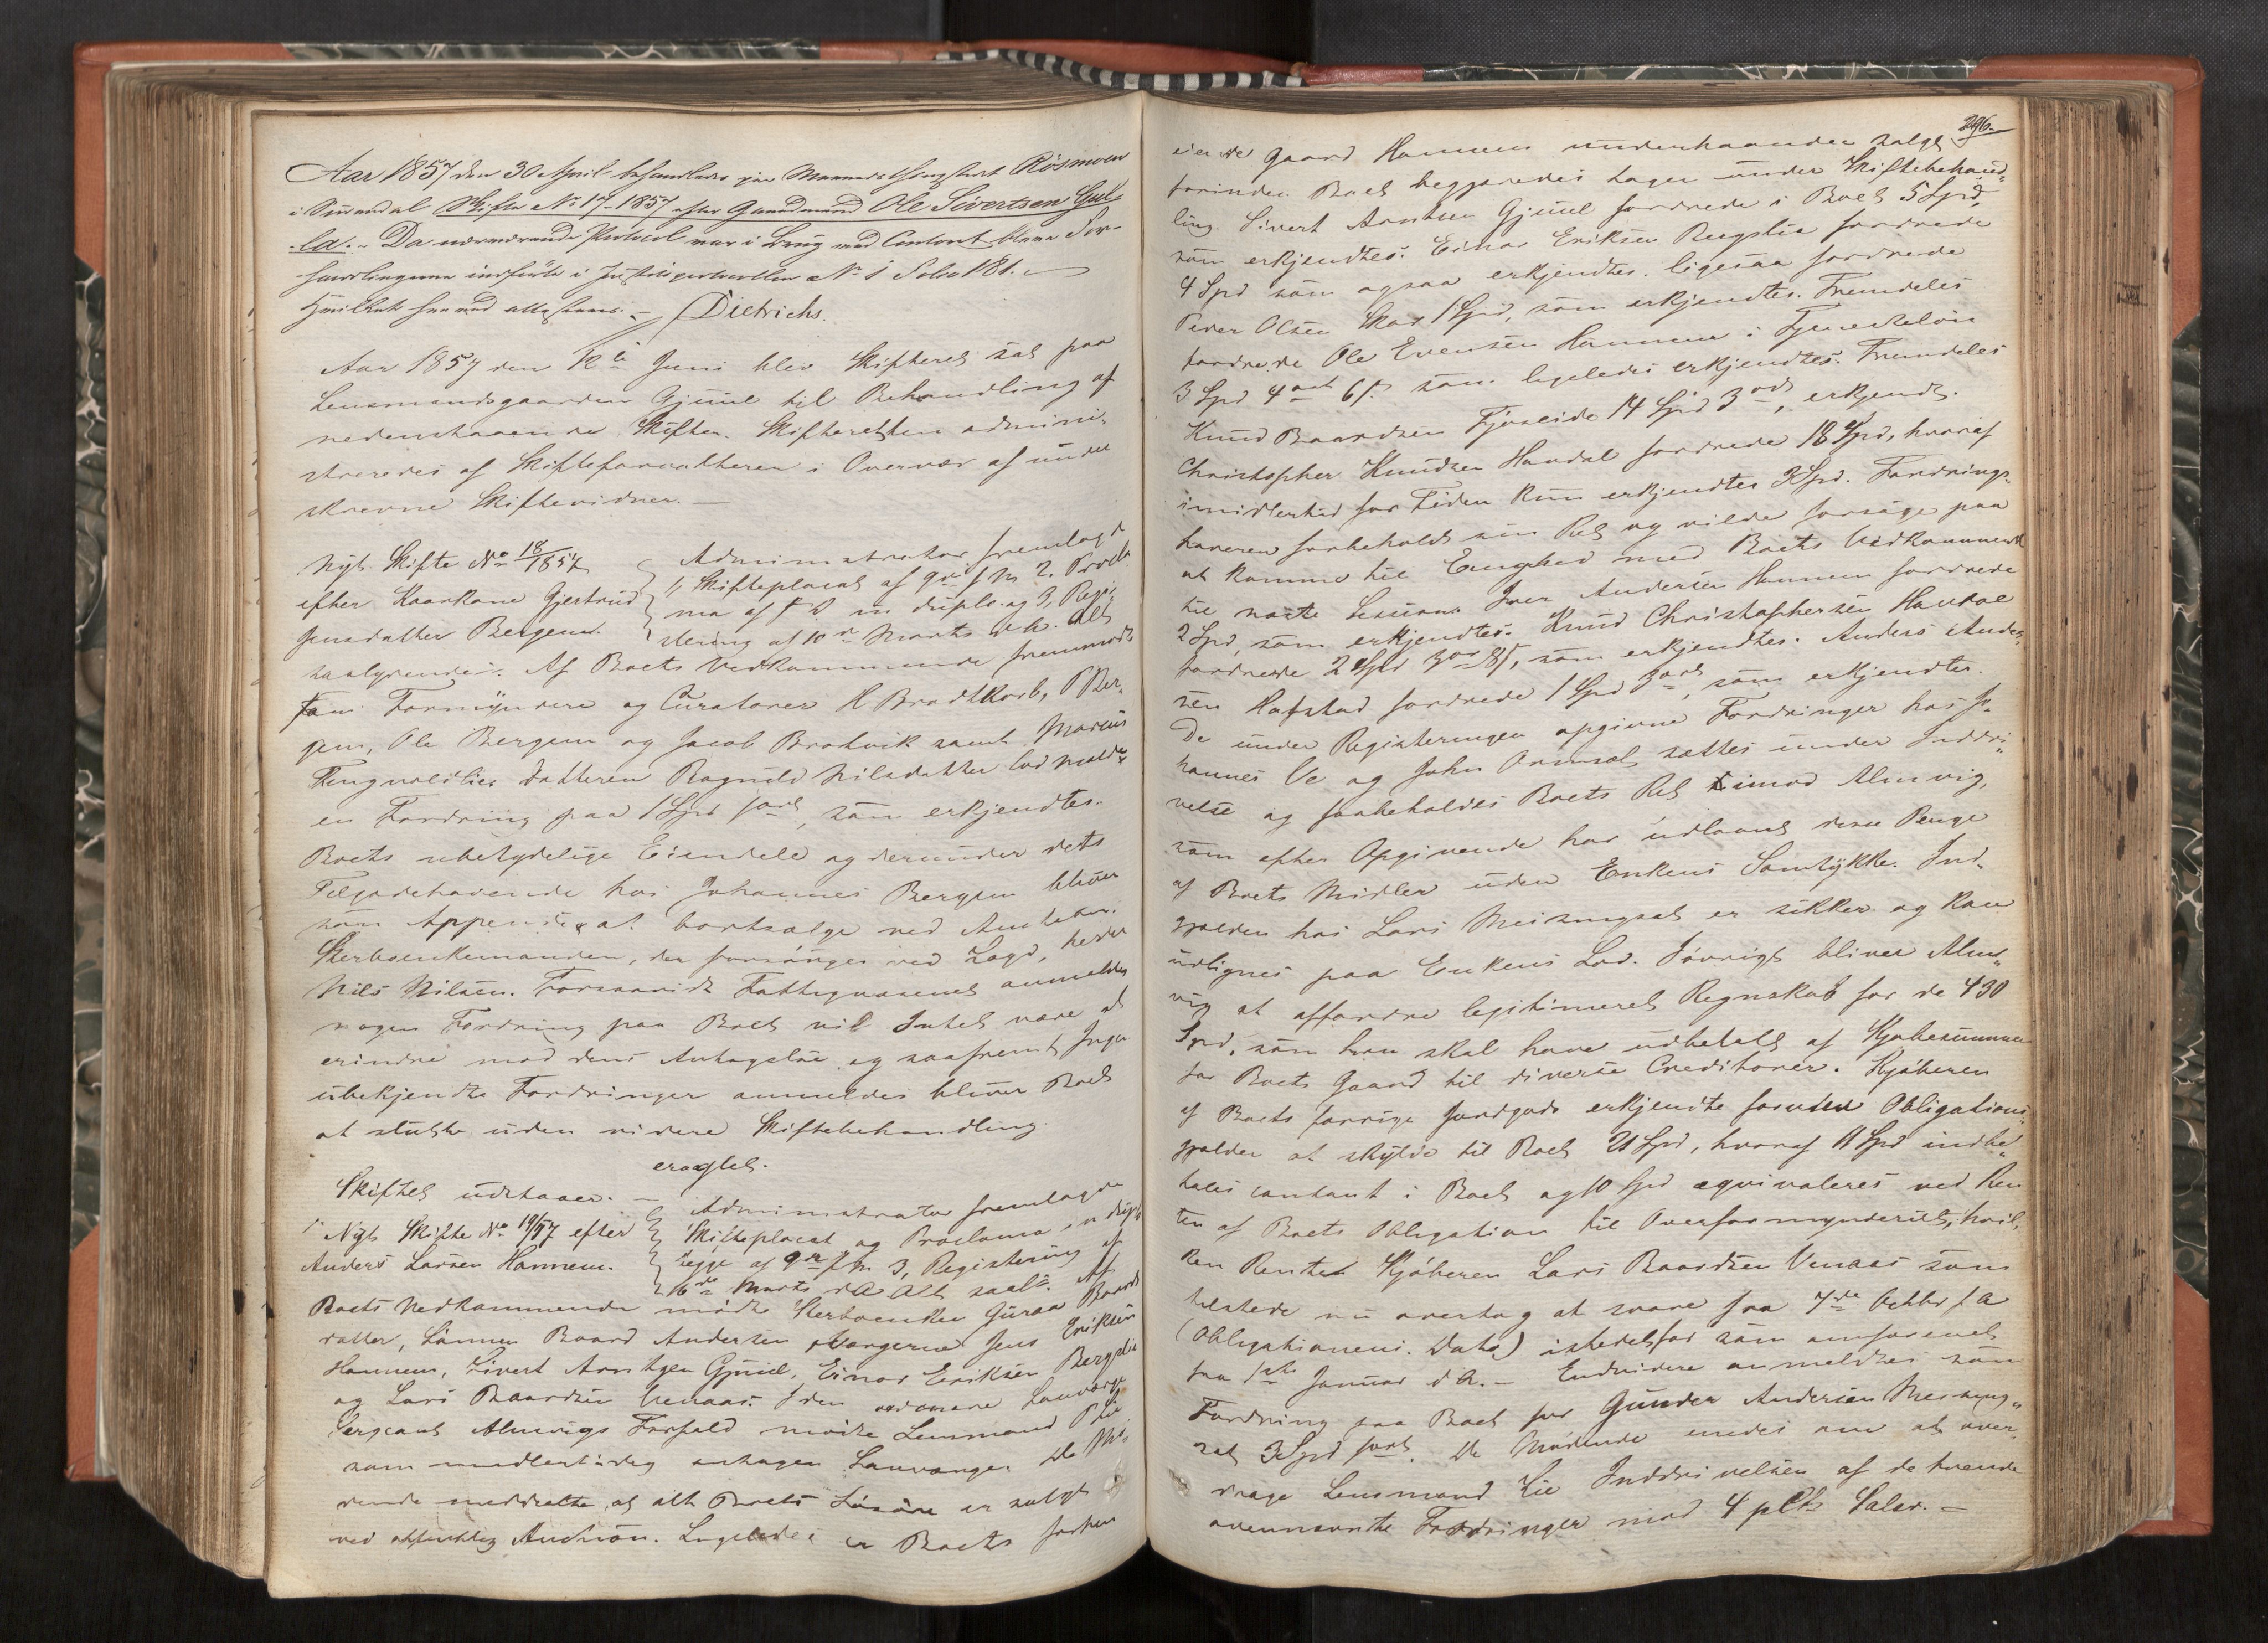 Aar 1857 den 30 April behandledes paa Mandsthingstedet Røsmoen
i Surendal Skifte No 17-1857 efter Gaardmand Ole Sivertsen Gul-
la. - Da nærværende Protocol var i Brug ved Contoret bleve For-
handlingerne indførte i Justitsprotocollen No 1 Folio 181. -
Hvilket herved attesteres. - Dietrichs.
Aar 1857 den 12te Juni blev Skifteret sat paa
Lensmandsgaarden Gjuul til Behandling af
nedenstaaende Skifter. Skifteretten admini-
streredes af Skifteforvalteren i Overvær af under
skrevne Skiftevidner. -
Nyt Skifte No 18/1857
efter Kaarkone Gjertrud
Jensdatter Bergem.
Administrator fremlagde
1, Skifteplacat af 9de f M 2. Procla
ma af s D in duplo og 3, Regi-
stering af 10de Marts d A. alt
saalydende. Af Boets Vedkommende fremmødte
som Formyndere og Curatorer H Brodtkorb, P Ber-
gem, Ole Bergem og Jacob Brøtvik samt Marcus
Tingvoldlie. Datteren Ragnild Nilsdatter lod melde
en Fordring paa 1 Spd 1 ort, som erkjendtes.
Boets ubetydelige Eiendele og derunder dets
Tilgodehavende hos Johannes Bergem bliver
som Appendix at bortsælge ved Auction.
Sterboenkemanden, der forsørges ved Lægd, heder
Nils Nilsen. Forsaavidt Fattigvæsenet anmelder
nogen Fordring paa Boet vil Intet være at
erindre mod dens Antagelse og saafremt Inge
ubekjendte Fordringer anmeldes bliver Boet
at slutte uden videre Skiftebehandling.
eragtet.
Skiftet udstaaer. -
Nyt Skifte No 19/57 efter
Anders Larsen Hannem.
Administrator fremlagde
Skifteplacat og Proclama in duplo
begge af 9de f M 3, Registering af
16de Marts d A alt saal. Af
Boets Vedkommende mødte Sterboenken Guroe Baards
datter, Sønnen Baard Andersen, Værgerne Jens Eriksen
Hannem, Sivert Arntsen Gjuul, Einar Eriksen Bergslie
og Lars Baardsen Venaas. I den ordinære Laugværge
Sergeant Almvigs Forfald mødte Lensmand Lie
som midlertidig antagen Laugværge. De Mø-
dende meddeelte, at alt Boets Løsøre er solgt
ved offentlig Auction. Ligeledes er Boets forhen
296.
eiende Gaard Hannem underhaanden solgt
forinden Boet begjæredes tagen under Skiftebehand-
ling. Sivert Arntsen Gjuul fordrede i Boet 5 Spd,
som erkjendtes. Einar Eriksen Bergslie fordrede
4 Spd som ogsaa erkjendtes. ligesaa fordrede
Peder Olsen Skar 1 Spd, som erkjendtes. Fremdeles
fordrede Ole Evensen Hannem i Tjenesteløn
3 Spd 4 ort 6 s. som ligeledes erkjendtes. Fremdeles
Knud Baardsen Fjøseide 14 Spd 3 ort, erkjendt.
Christopher Knudsen Handal fordrede 18 Spd, hvoraf
imidlertid for Tiden kun erkjendtes 3 Spd. Fordrings-
haveren forbeholdt sin Ret og vilde forsøge paa
at komme til Enighed med Boets Vedkommende
til næste Session. Iver Andersen Hannem fordrede
2 Spd, som erkjendtes. Knud Christophersen Handal
fordrede 2 Spd 3 ort 8 s, som erkjendtes. Anders Ander-
sen Hafstad fordrede 1 Spd 3 ort, som erkjendtes.
De under Registeringen opgivne Fordringer hos Jo-
hannes Ve og John Ormsæt sættes under Inddri-
velse og forbeholdes Boets Ret imod Almvig,
som efter Opgivende har udlaant disse Penge
af Boets Midler uden Enkens Samtykke. Ind-
gjælden hos Lars Meisingset er sikker og kan
udlignes paa Enkens Lod. Iøvrigt bliver Alm-
vig at affordre legitimeret Regnskab for de 430
Spd, som han skal have udbetalt af Kjøbesummen
for Boets Gaard til diverse Creditorer. Kjøberen
af Boets forrige Jordgods erkjendte foruden Obligations-
gjælden at skylde til Boet 21 Spd, hvoraf 11 Spd indbe-
tales contant i Boet og 10 Spd æqvivaleres ved Ren
ten af Boets Obligation til Overformynderiet, hvil-
ken Rente Kjøberen Lars Baardsen Venaas som
tilstede nu overtog at svare fra 7de Octbr f A
(Obligationens Dato) istedetfor som anførenet
fra 1ste Januar d A. - Endvidere anmeldtes som
Fordring paa Boet for Gunder Andersen Meising-
set 3 Spd 1 ort. De Mødende enedes om at over-
drage Lensmand Lie Inddrivelsen af de tvende
ovennævnte Fordringer mod 4 pCt Salar. -